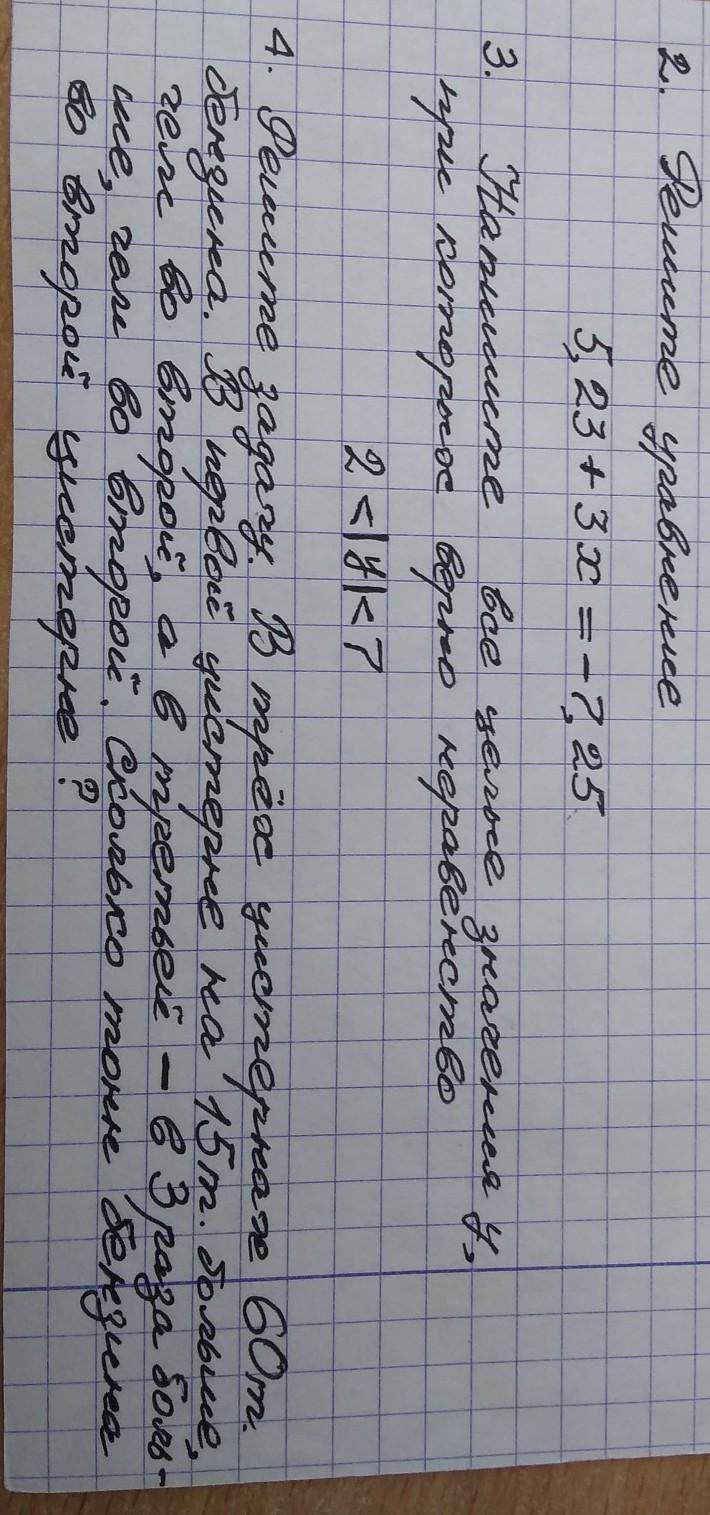 2. Решите уравнение
5,23 + 3x = -7,25
3. Напишите все целые значения y,
при которых верно неравенство
2 < |y| < 7
4. Решите задачу. В трёх цистернах 60т.
бензина. В первой цистерне на 15т. больше,
чем во второй, а в третьей - в 3 раза боль-
ше, чем во второй. Сколько тонн бензина
во второй цистерне?